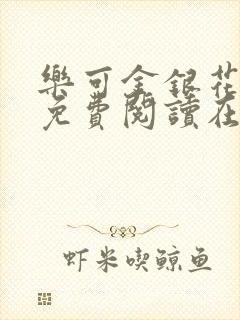 樂可金銀花
免費閱讀在
虾米喫鲸鱼